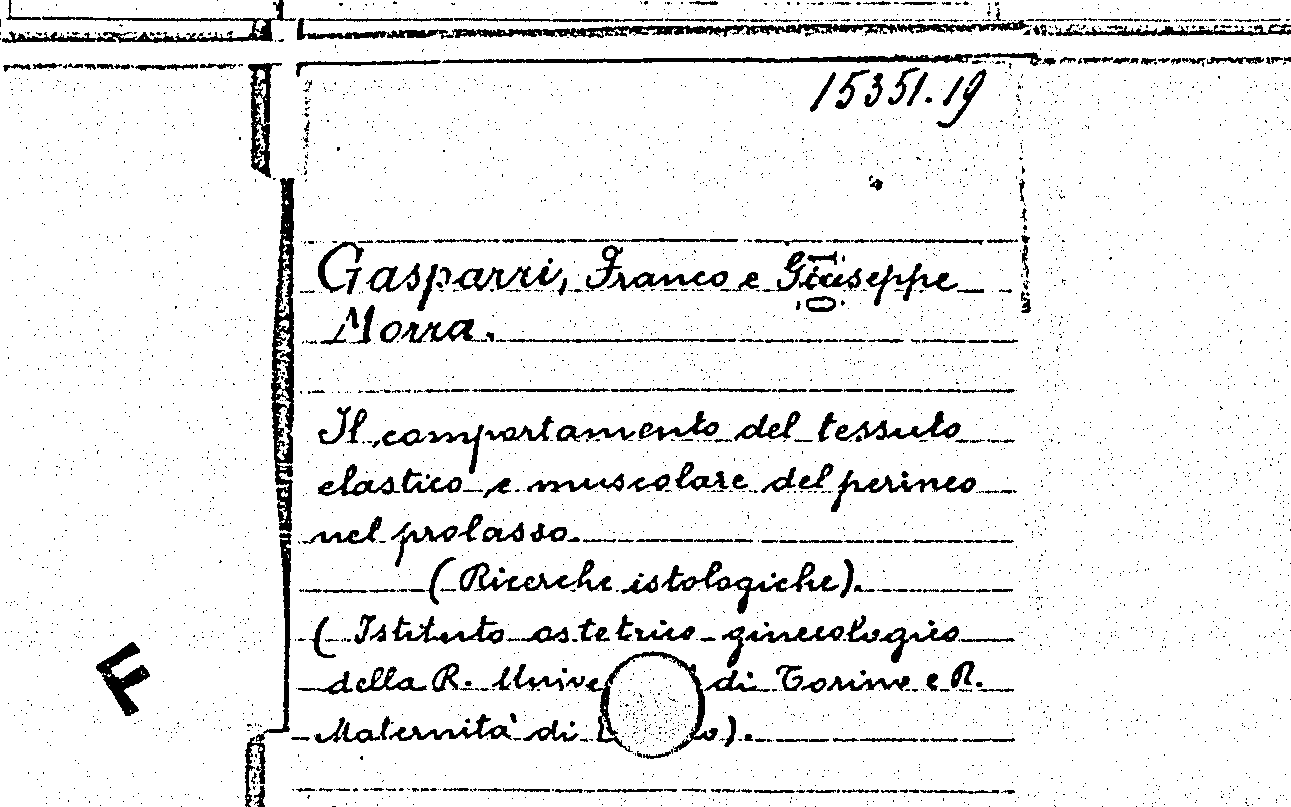 15351.19
Gasparri, Franco e Giuseppe
Morra.
Il comportamento del tessuto
elastico e muscolare del perineo
nel prolasso.
(Ricerche istologiche).
(Istituto ostetrico-ginecologico
della R. di Torino e R.
Maternità di
F